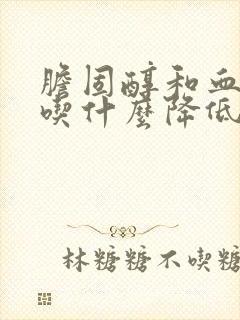 膽固醇和血
喫什麼降低
林糖糖不喫糖